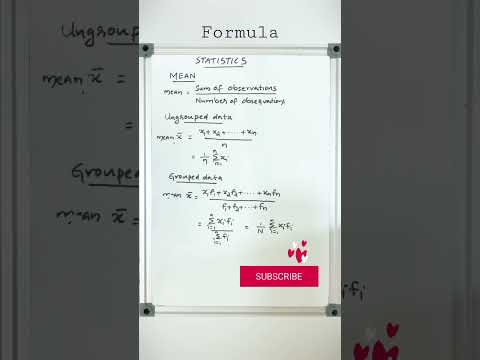 Formula
STATISTICS
MEAN
mean = Sum of observations
Number of observations
Ungrouped data
mean, x̄ = x₁+x₂+.....+xₙ
n
= 1/n Σⁿᵢ₌₁ xᵢ
Grouped data
mean x̄ = x₁f₁+x₂f₂+.....+xₙfₙ
f₁+f₂+...+fₙ
= Σⁿᵢ₌₁ xᵢfᵢ / Σⁿᵢ₌₁ fᵢ = 1/N Σⁿᵢ₌₁ xᵢfᵢ
SUBSCRIBE
Ungrouped
mean, x̄ =
=
Grouped
mean x̄ =
ᵢfᵢ